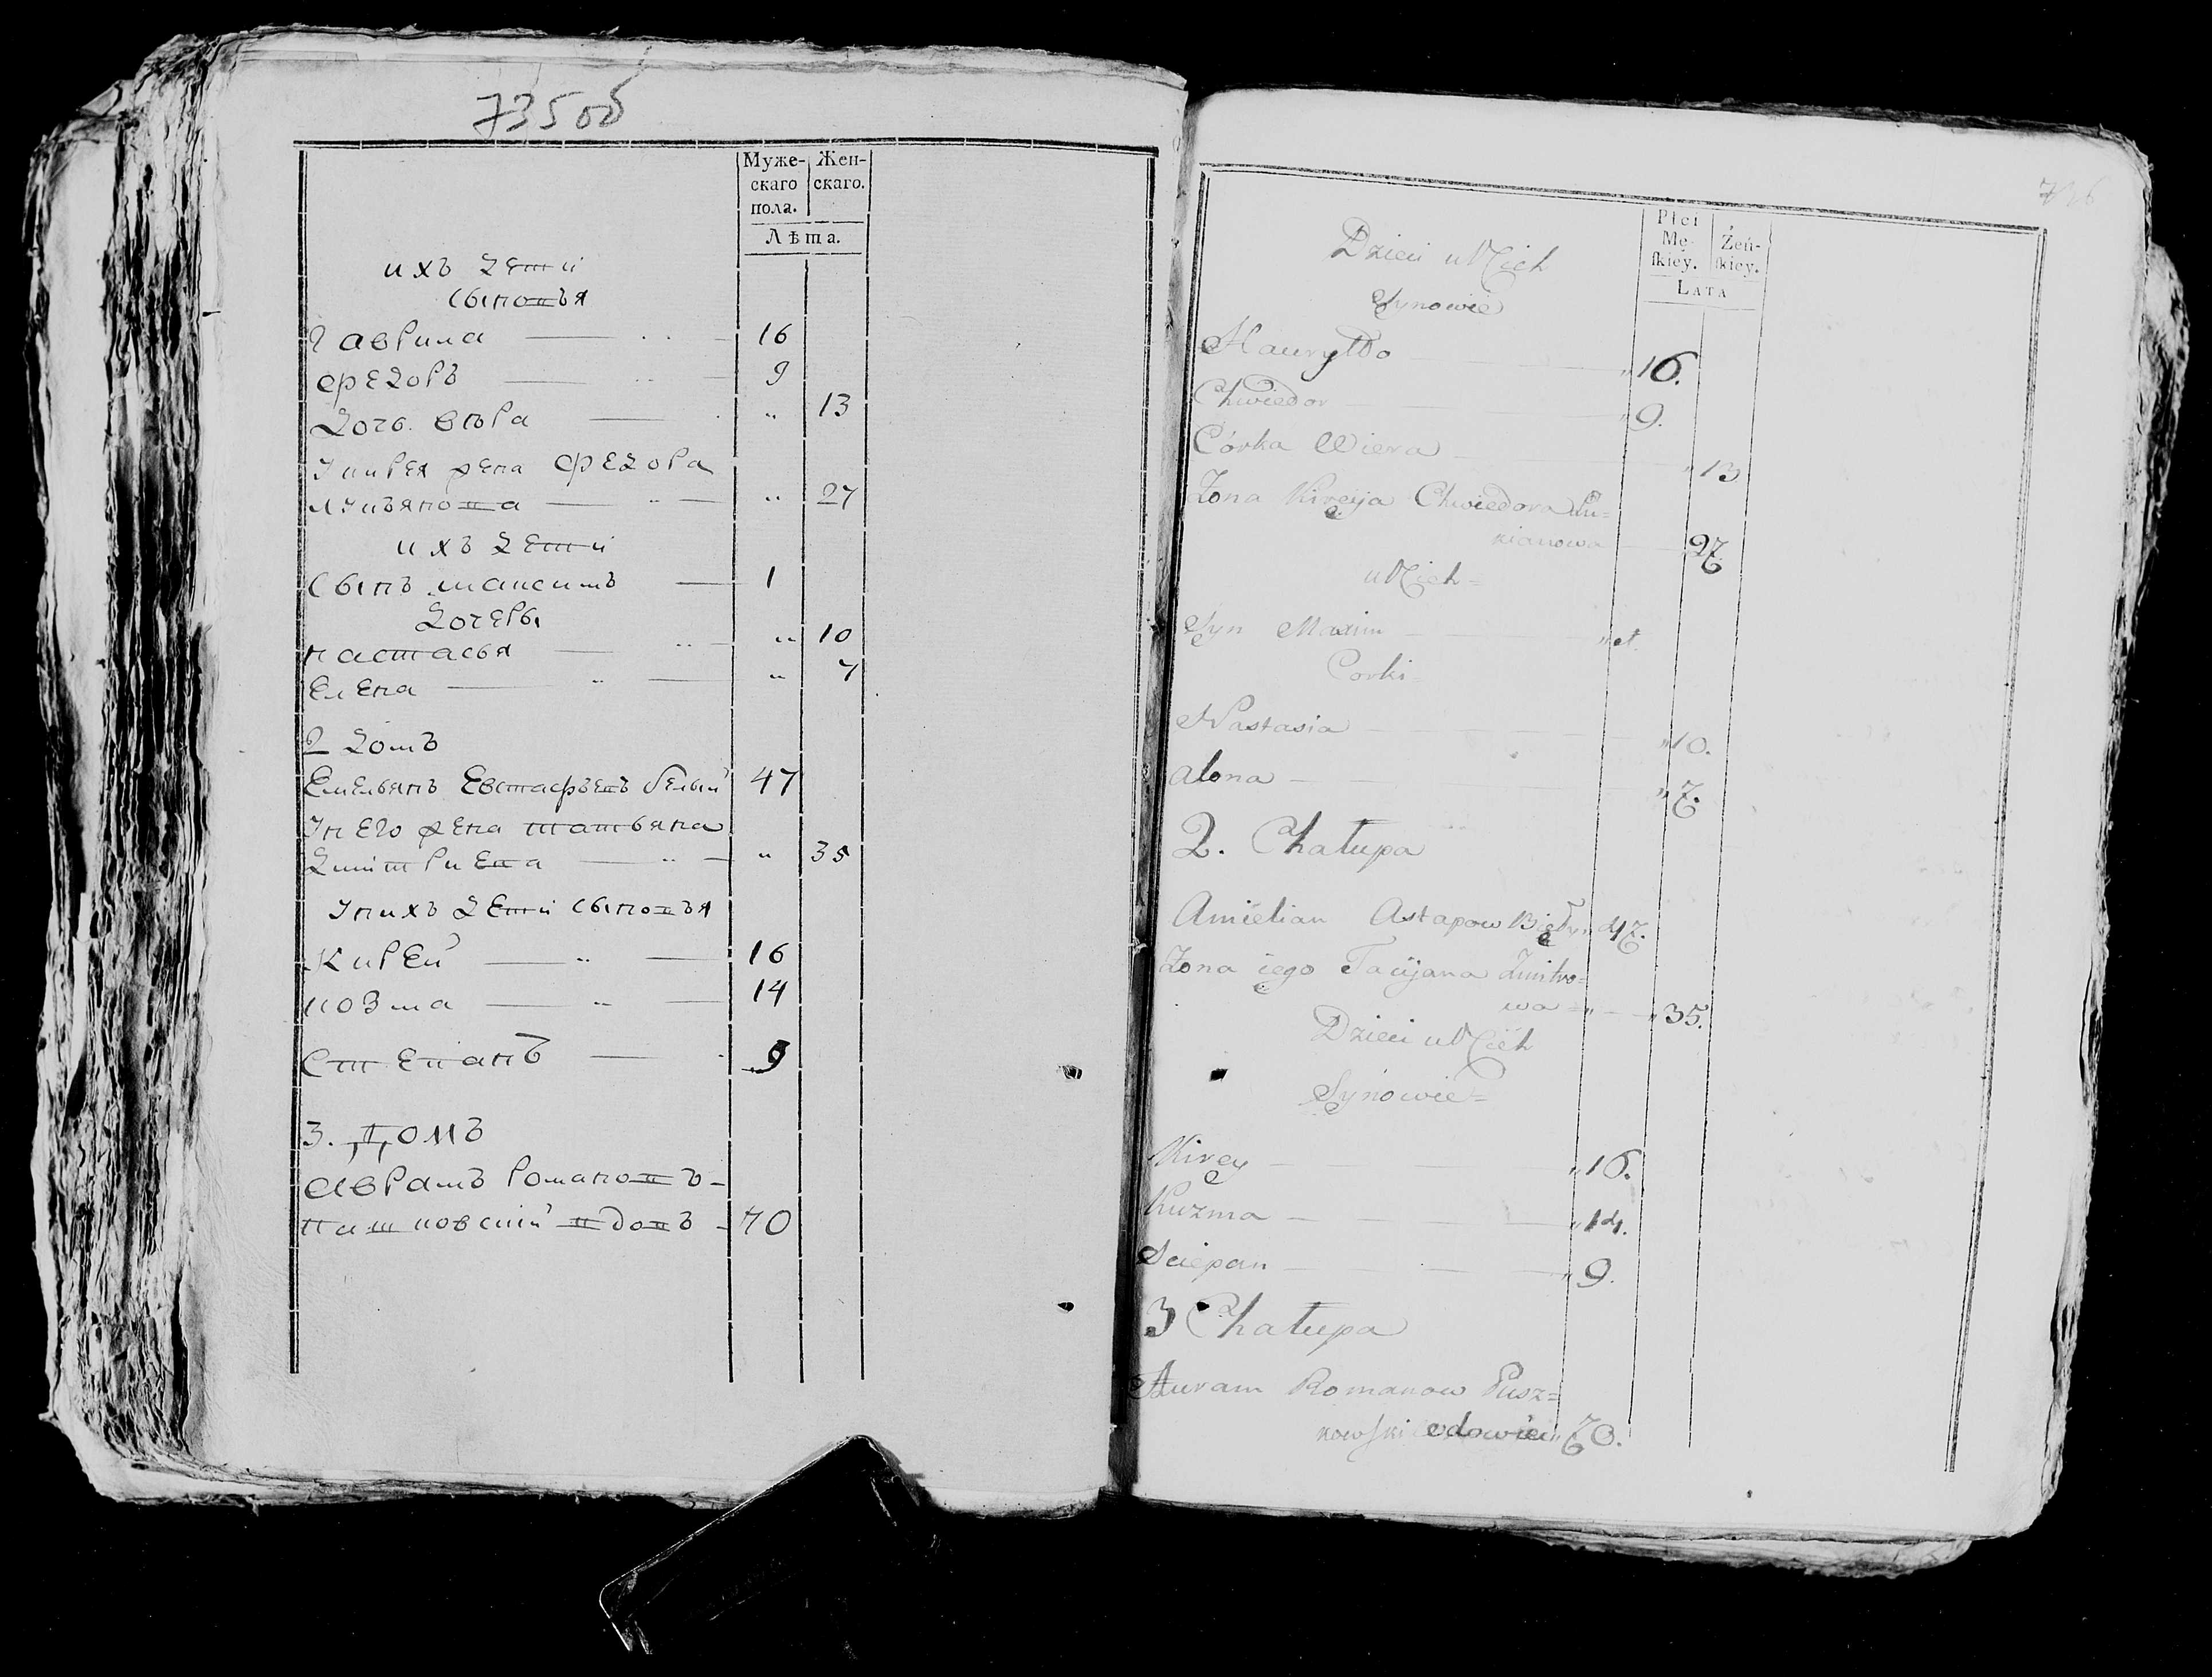 735об
Муже- Жен-
скаго скаго.
пола.
Лѣта.
ихъ детй
сыновья
Гаврила 16
Федоръ 9
дочь вѣра " 13
У кирея жена Федора
лукьянова " 27
ихъ детй
сынъ максимъ 1
дочеры
настасья " 10
елена " 7
2 домъ
Емельянъ Евстафьевъ белый 47
У него жена татьяна
дмитриева " 35
У нихъ детй сыновья
Кирей 16
козма 14
Степанъ 9
3. Домъ
Аврамъ романовъ
пашковский вдовъ 70
736
Płci
Mę- Żeń-
ſkiey. ſkiey.
LATA
Dzieci u Nich
Synowie
Hauryłło " 16.
Chwiedor " 9.
Córka Wiera " 13
Zona Kireyja Chwiedora Łu=
kianowa 27
u Nich=
Syn Maxim " 1.
Corki
Nastasia " 10.
Alona " 7.
2. Chałupa
Amielian Astapow Biely " 47.
Zona iego Tacijana Zmitro=
wa = " " 35.
Dzieci u Nich
Synowie=
Kirey " 16.
Kuzma " 14.
Sciepan " 9.
3 Chałupa
Auram Romanow Pusz=
kowſki wdowiec " 70.